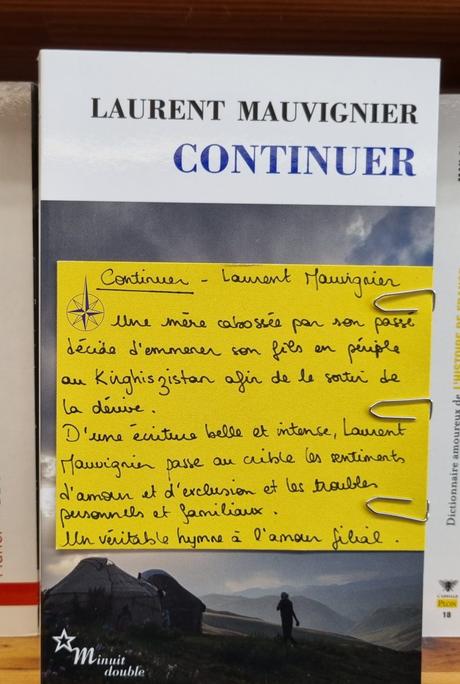 LAURENT MAUVIGNIER
CONTINUER
Continuer - Laurent Mauvignier
Une mère cabossée par son passé
décide d'emmener son fils en périple
au Kirghizistan afin de le sortir de
la dérive.
D'une écriture belle et intense, Laurent
Mauvignier passe au crible les sentiments
d'amour et d'exclusion et les troubles
personnels et familiaux.
Un véritable hymne à l'amour filial.
Minuit
double
Dictionnaire amoureux de
L'HISTOIRE DE FRANCE
L'ABEILLE
PLON
18